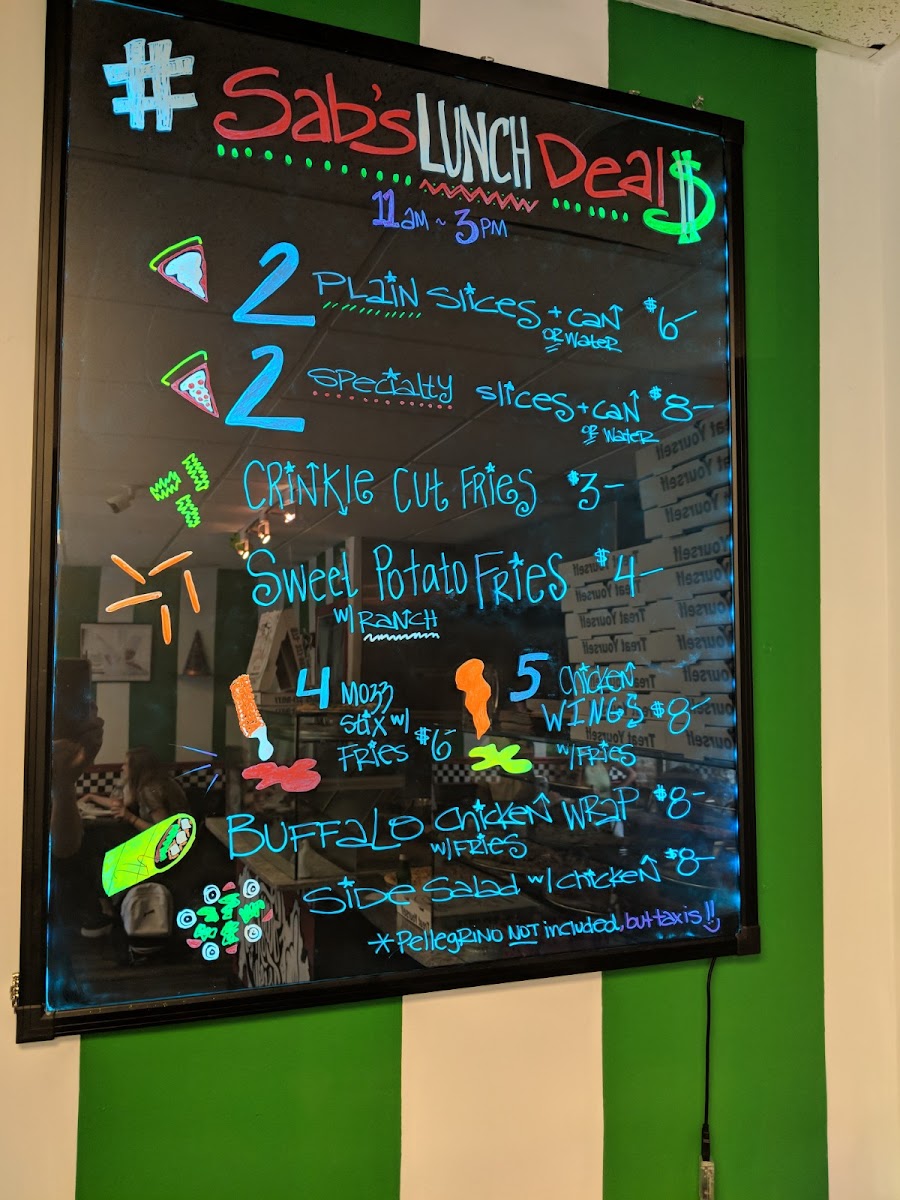 # Sab's LUNCH Deal$
11 AM ~ 3 PM
2 PLAIN slices + can $6-
OR WATER
2 specialty slices + can $8-
OR WATER
CRINKLE CUT FRIES $3-
Sweet Potato FRIES $4-
w/ RANCH
4 Mozz
Stix w/
FRIES $6-
5 Chicken
WINGS $8-
w/FRIES
BUFFALO chicken WRAP $8-
w/FRIES
Side Salad w/chicken $8-
* PelleGRINO NOT included, but tax is !!
Treat Yourself
Treat Yourself
Treat Yourself
Treat Yourself
Treat Yourself